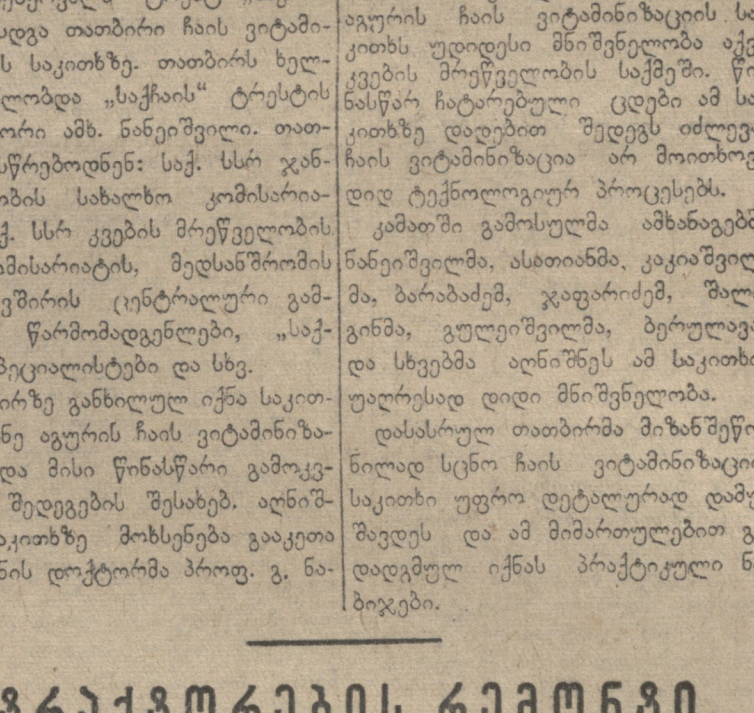 სდგა თათბირი ჩაის ვიტამი-
ს საკითხზე. თათბირს ხელ-
ლობდა „საქჩაის“ ტრესტის
ორი ამხ. ნანეიშვილი. თათ-
სწრებოდნენ: საქ. სსრ ჯან-
ობის სახალხო კომისარია-
ქ. სსრ კვების მრეწველობის
ამისარიატის, მედსანშრომის
ვშირის ცენტრალური გამ-
წარმომადგენლები, „საქ-
პეციალისტები და სხვ.
ირზე განხილულ იქნა საკით-
ნე აგურის ჩაის ვიტამინიზა-
და მისი წინასწარი გამოკვ-
შედეგების შესახებ. აღნიშ-
აკითხზე მოხსენება გააკეთა
ნის დოქტორმა პროფ. გ. ნა-
აგურის ჩაის ვიტამინიზაციის სა
კითხს უდიდესი მნიშვნელობა აქვ
კვების მრეწველობის საქმეში. წი
ნასწარ ჩატარებული ცდები ამ სა
კითხზე დადებით შედეგს იძლევ
ჩაის ვიტამინიზაცია არ მოითხოვ
დიდ ტექნოლოგიურ პროცესებს.
კამათში გამოსულმა ამხანაგებმ
ნანეიშვილმა, ასათიანმა, კაკიაშვილ
მა, ბარაბაძემ, ჯაფარიძემ, შალ
გინმა, გულეიშვილმა, ბერულავ
და სხვებმა აღნიშნეს ამ საკითხი
უაღრესად დიდი მნიშვნელობა.
დასასრულ თათბირმა მიზანშეწო
ნილად სცნო ჩაის ვიტამინიზაციი
საკითხი უფრო დეტალურად დამუ
შავდეს და ამ მიმართულებით გ
დადგმულ იქნას პრაქტიკული ნ
ბიჯები.
ტრაქტორების რემონტი